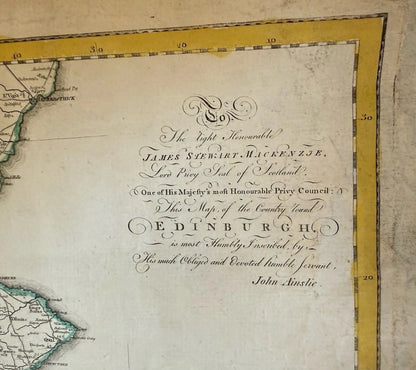 40 30 20 10
30
To
The Right Honourable
JAMES STEWART MACKENZIE,
Lord Privy Seal of Scotland;
One of His Majesty's most Honourable Privy Council:
This Map, of the Country round
EDINBURGH,
is most Humbly Inscribed by,
His much Obliged and Devoted humble Servant,
John Ainslie.
20